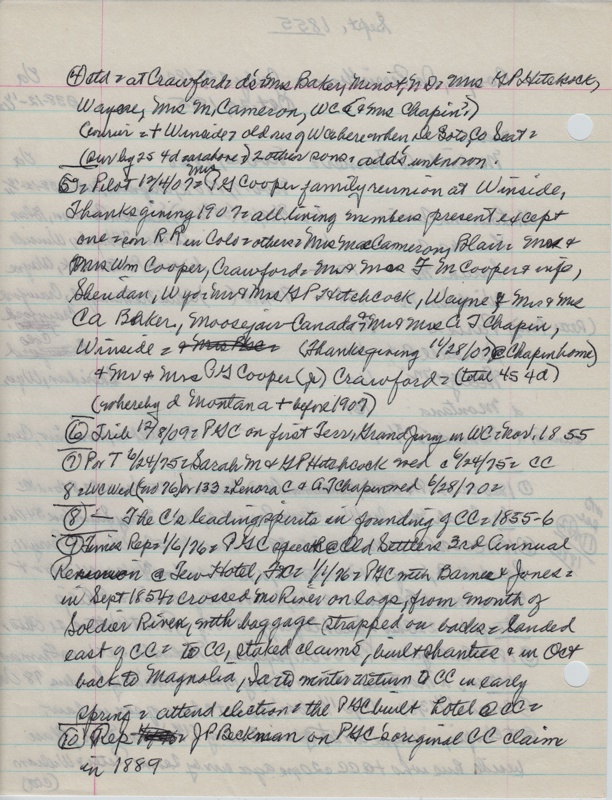 ④ old = at Crawford = d's = Mrs Baker, Minot, ND = Mrs G P Hitchcock,
Wayne, Mrs M. Cameron, WC (& Mrs Chapin?)
= + Winside = old res of WC here when De Soto Co Seat =
(Sur by 2 S 4 d) 2 other sons = add's unknown.
⑤ = Pilot 12/4/07 = Mrs P G Cooper family reunion at Winside,
Thanksgiving 1907 = all living members present except
one = on R R in Colo = others = Mrs Mac Cameron, Blair = Mr &
Mrs Wm Cooper, Crawford = Mr & Mrs F M Cooper & wife,
Sheridan, Wyo = Mr & Mrs G P Hitchcock, Wayne & Mr & Mrs
C A Baker, Moosejaw Canada & Mr & Mrs C T Chapin,
Winside = (Thanksgiving 11/28/07 @ Chapin home)
& Mr & Mrs P G Cooper (Jr) Crawford = (total 4 S 4 d)
(whereby d Montana + before 1907)
⑥ Trib 12/8/09 = P G C on first Terr, Grand Jury in WC = Nov. 1855
⑦ Por T 6/24/75 = Sarah M & G P Hitchcock wed @ 6/24/75 = CC
8 = WC Wed (no 76) or 133 = Lenora C & A T Chapin wed 6/28/70 =
⑧ — The C's leading spirits in founding of CC = 1855-6
⑨ Times Rep = 1/6/76 = P G C speech @ Old Settlers 3rd Annual
Reunion @ Tew Hotel, = 1/1/76 = P G C with Barnes & Jones =
in Sept 1854 = crossed Mo River on logs, from mouth of
Soldier River, with baggage strapped on backs = Landed
east of CC = to CC, staked claims, built shanties & in Oct
back to Magnolia, Ia to winter = return to CC in early
spring = attend election = the P G C built hotel @ CC =
⑩ Rep = J P Beckman on P G C's original CC claim
in 1889